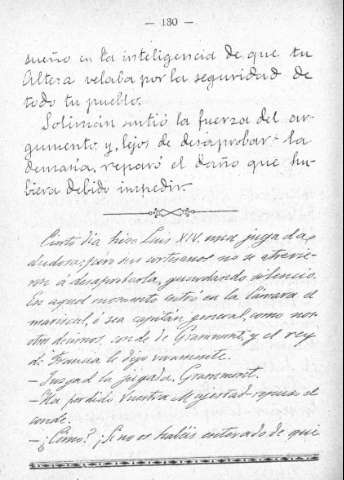 — 130 —
sueño en la inteligencia de que tu
Alteza velaba por la seguridad de
todo tu pueblo.
Solimán sintió la fuerza del ar-
gumento y, lejos de desaprobar la
demasía, reparó el daño que hu-
biera debido impedir.
Cierto día hizo Luis XIV una jugada
dudosa; pero sus cortesanos no se atrevie-
ron a desaprobarla, guardando silencio.
En aquel momento entró en la cámara el
mariscal, ó sea capitán general, como nos-
otros decimos, conde de Grammont, y el rey
de Francia le dijo vivamente.
— Juzgad la jugada, Grammont.
— Ha perdido Vuestra Majestad— repuso el
conde.
— ¿Cómo? ¡Si no os habéis enterado de qué